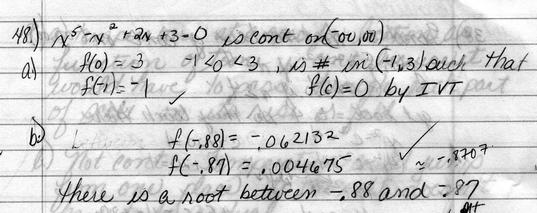 48.) x⁵-x²+2x+3=0 is cont on (-∞,∞)
a) f(0)=3 -1<0<3, is # in (-1,3) such that
f(-1)=-1 ✓ f(c)=0 by IVT
b) f(-.88)=-.062132
f(-.87)=.004675 ✓ ≈ -.8707
there is a root between -.88 and -.87